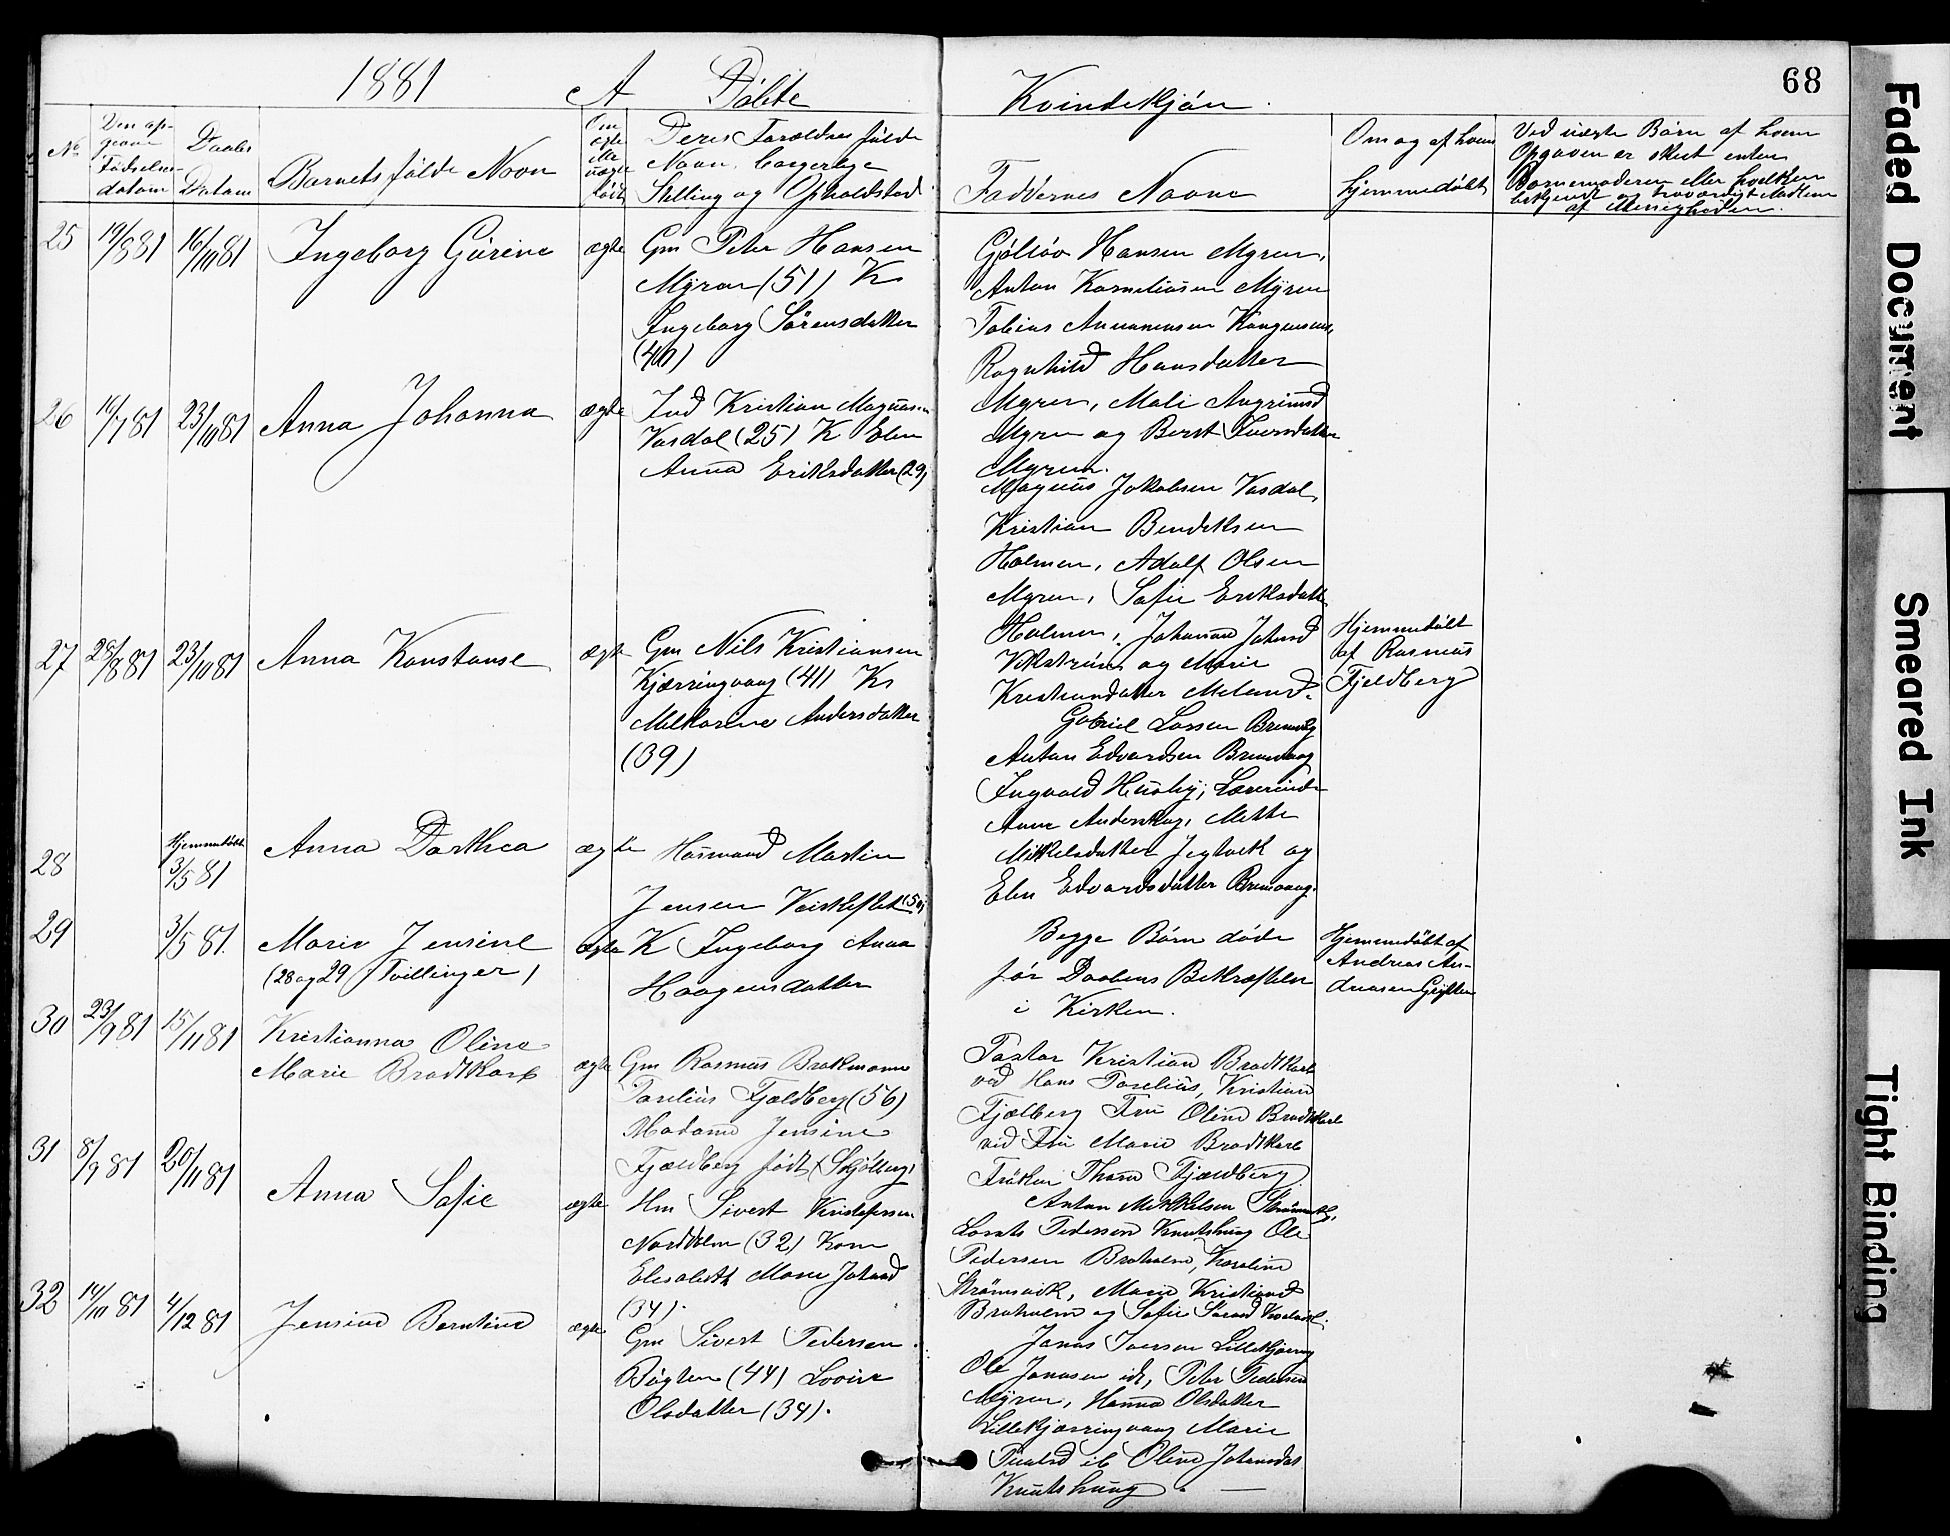 1881 A Døbte Kvindekjøn. 68
No
Den op-
givne
Fødsels-
datum
Daabs
Datum
Barnets fulde Navn
Om
ægte
eller
uægte
født
Deres Forældres fulde
Navn, borgerlige
Stilling og Opholdsted
Faddernes Navne
Om og af hvem
hjemmedøbt
Ved uægte Børn af hvem
Opgaven er skeet enten
Barnemoderen eller hvilken
bekjendt og troværdigt Medlem
af Menigheden.
25 19/8 81 16/10 81 Ingeborg Gurine ægte
Gm Peter Hansen
Myren (51) K
Ingeborg Sørensdatter
Hansen Myren,
Anton Korneliussen Myren
Tobias
Ragnhild Hansdatter
Myren, Mali
Myren og Berit Iversdatter
Myren.
26 16/7 81 23/10 81 Anna Johanna ægte
Ind Kristian Magnusen
Vasdal (25) K Elen
Anna Eriksdatter (29)
Magnus Jakobsen Vasdal,
Kristian Bendiksen
Holmen, Adolf Olsen
Myren, Sofie Eriksdatt
Holmen, Johanna Johnsd
og Marie
Kristiansdatter
27 28/8 81 23/10 81 Anna Konstanse ægte
Gm Nils Kristiansen
Kjørringvaag (41) K
Andersdatter
(39)
Gabriel Larsen Bremvaag
Anton Edvardsen Bremvaag
Ingvald Husby, Lærerinde
Anne mette
Mikkelsdatter Jegtvik og
Elen Edvardsdatter Bremvaag.
Hjemmedøbt
af Rasmus
Fjeldberg
28 Hjemmedøbt
3/5 81 Anna Dorthea ægte
Husmand Martin
Jensen (50)
29 3/5 81 Marie Jensine ægte
(28 og 29 Tvillinger)
K Ingeborg Anna
Haagensdatter
Begge Børn døde
før Daabens Bekræftelse
i Kirken.
Hjemmedøbt af
Andreas An-
dreasen Gryten
30 23/9 81 15/11 81 Kristianna Olina
Marie Brodtkorb ægte
Gm Rasmus Brokmann
Parelius Fjeldberg (56)
Madame Jensine
Fjældberg født
Pastor Kristian Brodtkorb
ved Hans Parelius, Kristian
Fjelberg Fru Olina Brodtkorb
ved Fru Marie Brodtkorb
Frøken Thora Fjældberg
31 8/9 81 20/11 81 Anna Sofie ægte
Hm Sivert Kristofersen
Nordholm (32) Kone
Elisabeth Marie Johnsd
(34).
Anton Mikkelsen
Pedersen Knutshaug Ole
Pedersen Broholm, Karoline
Strømsvik, Marie Kristiansd
Broholm og Sofie
32 14/10 81 4/12 81 Jensine Berntine ægte
Gm Sivert Pedersen
Bøgten (44) Lovise
Olsdatter (34).
Jonas Iversen Lillekjørring
Ole Jonasen id, Peter Pedersen
Myren, Hanna Olsdatter
Lillekjørringvaag Marie
ib Oline Johansdat
Knutshaug.
Faded Document
Smeared Ink
Tight Binding